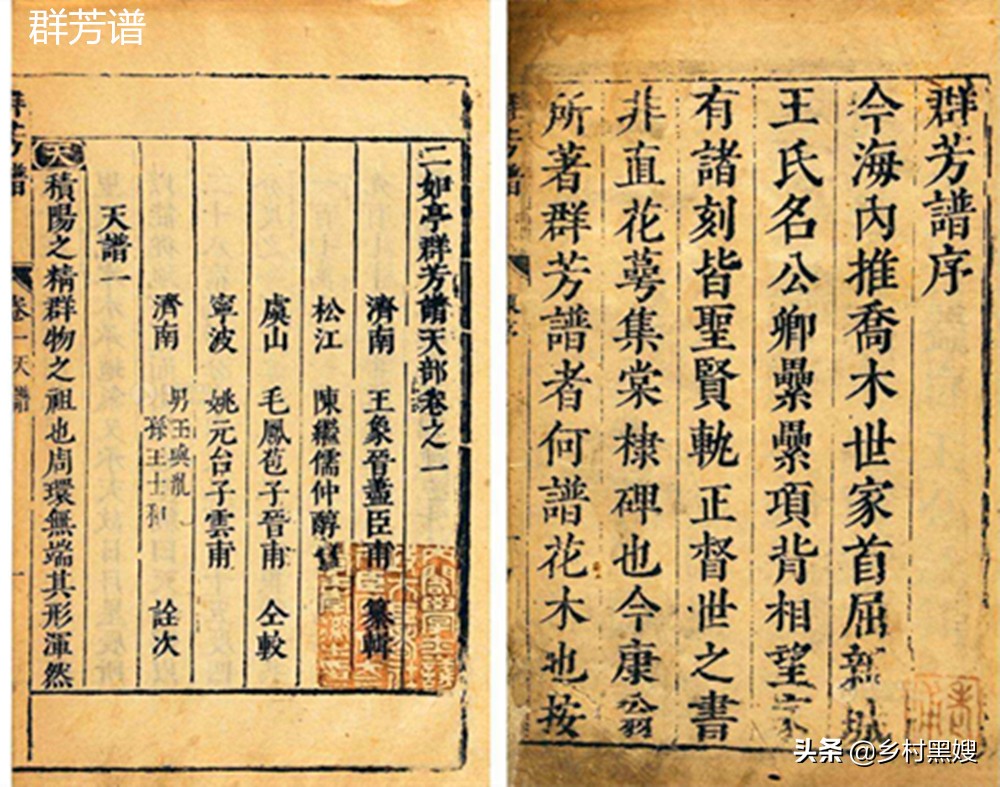 群芳谱
群芳譜序
今海內推喬木世家首屈新城
王氏名公卿纍纍項背相望家
有諸刻皆聖賢軌正督世之書
非直花萼集棠棣碑也今康翁
所著群芳譜者何譜花木也按
二如亭群芳譜天部卷之一
濟南 王象晉藎臣甫 纂輯
松江 陳繼儒仲醇甫
虞山 毛鳳苞子晉甫 仝較
寧波 姚元台子雲甫
濟南 男王與胤 孫王士和 詮次
天譜一
天 積陽之精群物之祖也周環無端其形渾然
卷一 天譜
头条 @乡村黑嫂